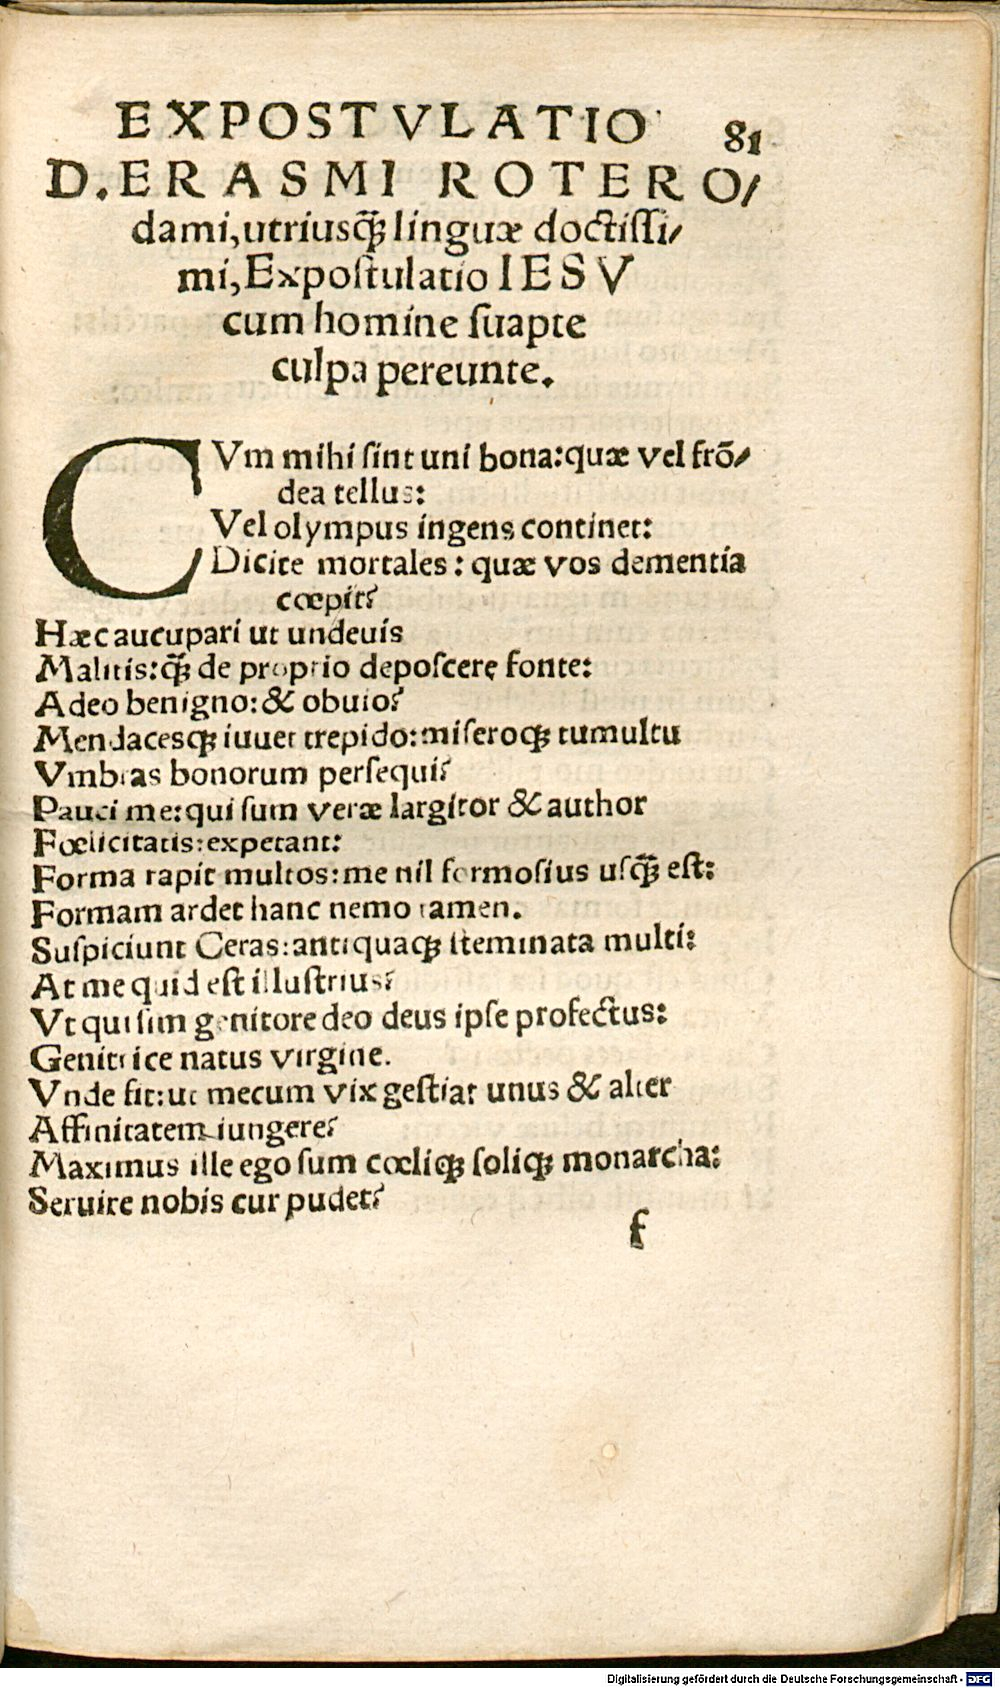 EXPOSTVLATIO
81
D. ERASMI ROTERO/
dami, utriusq̃ꝫ linguæ doctissi/
mi, Expostulatio IESV
cum homine suapte
culpa pereunte.
CVm mihi sint uni bona: quæ vel frõ/
dea tellus:
Vel olympus ingens continet:
Dicite mortales: quæ vos dementia
cœpit?
Hæc aucupari ut undeuis
Malitis: q̃ꝫ de proprio deposcere fonte:
Adeo benigno: & obuio?
Mendacesqꝫ iuuet trepido: miseroqꝫ tumultu
Vmbras bonorum persequi?
Pauci me: qui sum veræ largitor & author
Fœlicitatis: expetant:
Forma rapit multos: me nil formosius usq̃ꝫ est:
Formam ardet hanc nemo tamen.
Suspiciunt Ceras: antiquaqꝫ steminata multi:
At me quid est illustrius?
Vt qui sim genitore deo deus ipse profectus:
Genitrice natus virgine.
Vnde fit: ut mecum vix gestiat unus & alter
Affinitatem iungere?
Maximus ille ego sum cœliqꝫ soliqꝫ monarcha:
Seruire nobis cur pudet?
f
Digitalisierung gefördert durch die Deutsche Forschungsgemeinschaft - DFG